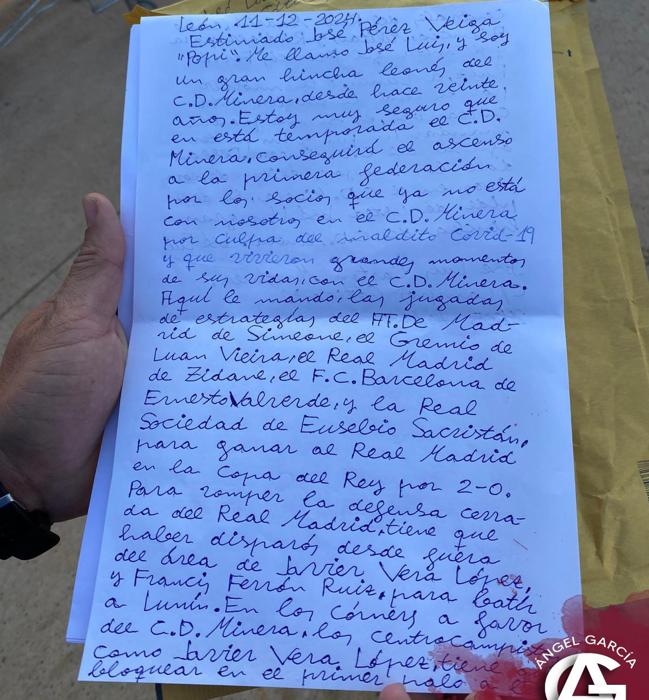 León, 11-12-2024.
Estimado José Pérez Veiga
"Popi": Me llamo José Luis, y soy
un gran hincha leonés del
C.D.Minera, desde hace veinte
años. Estoy muy seguro que
en está temporada el C.D.
Minera, conseguirá el ascenso
a la primera federación
por los socios que ya no está
con nosotros en el C.D. Minera
por culpa del maldito Covid-19
y que vivieron grandes momentos
de sus vidas, con el C.D. Minera.
Aquí le mando, las jugadas
de estrategias del AT.De Mad-
rid de Simeone, el Gremio de
Luan Vieira, el Real Madrid
de Zidane, el F.C. Barcelona de
Ernesto Valverde, y la Real
Sociedad de Eusebio Sacristán,
para ganar al Real Madrid
en la Copa del Rey por 2-0.
Para romper la defensa cerra-
da del Real Madrid, tiene que
haber disparós desde fuera
del área de Javier Vera López,
y Francis Ferrón Ruiz, para batir
a Lunín. En los córners a favor
del C.D. Minera, los
como Javier Vera López, tiene
bloquear en el primer palo a
ÁNGEL GARCÍA
AG